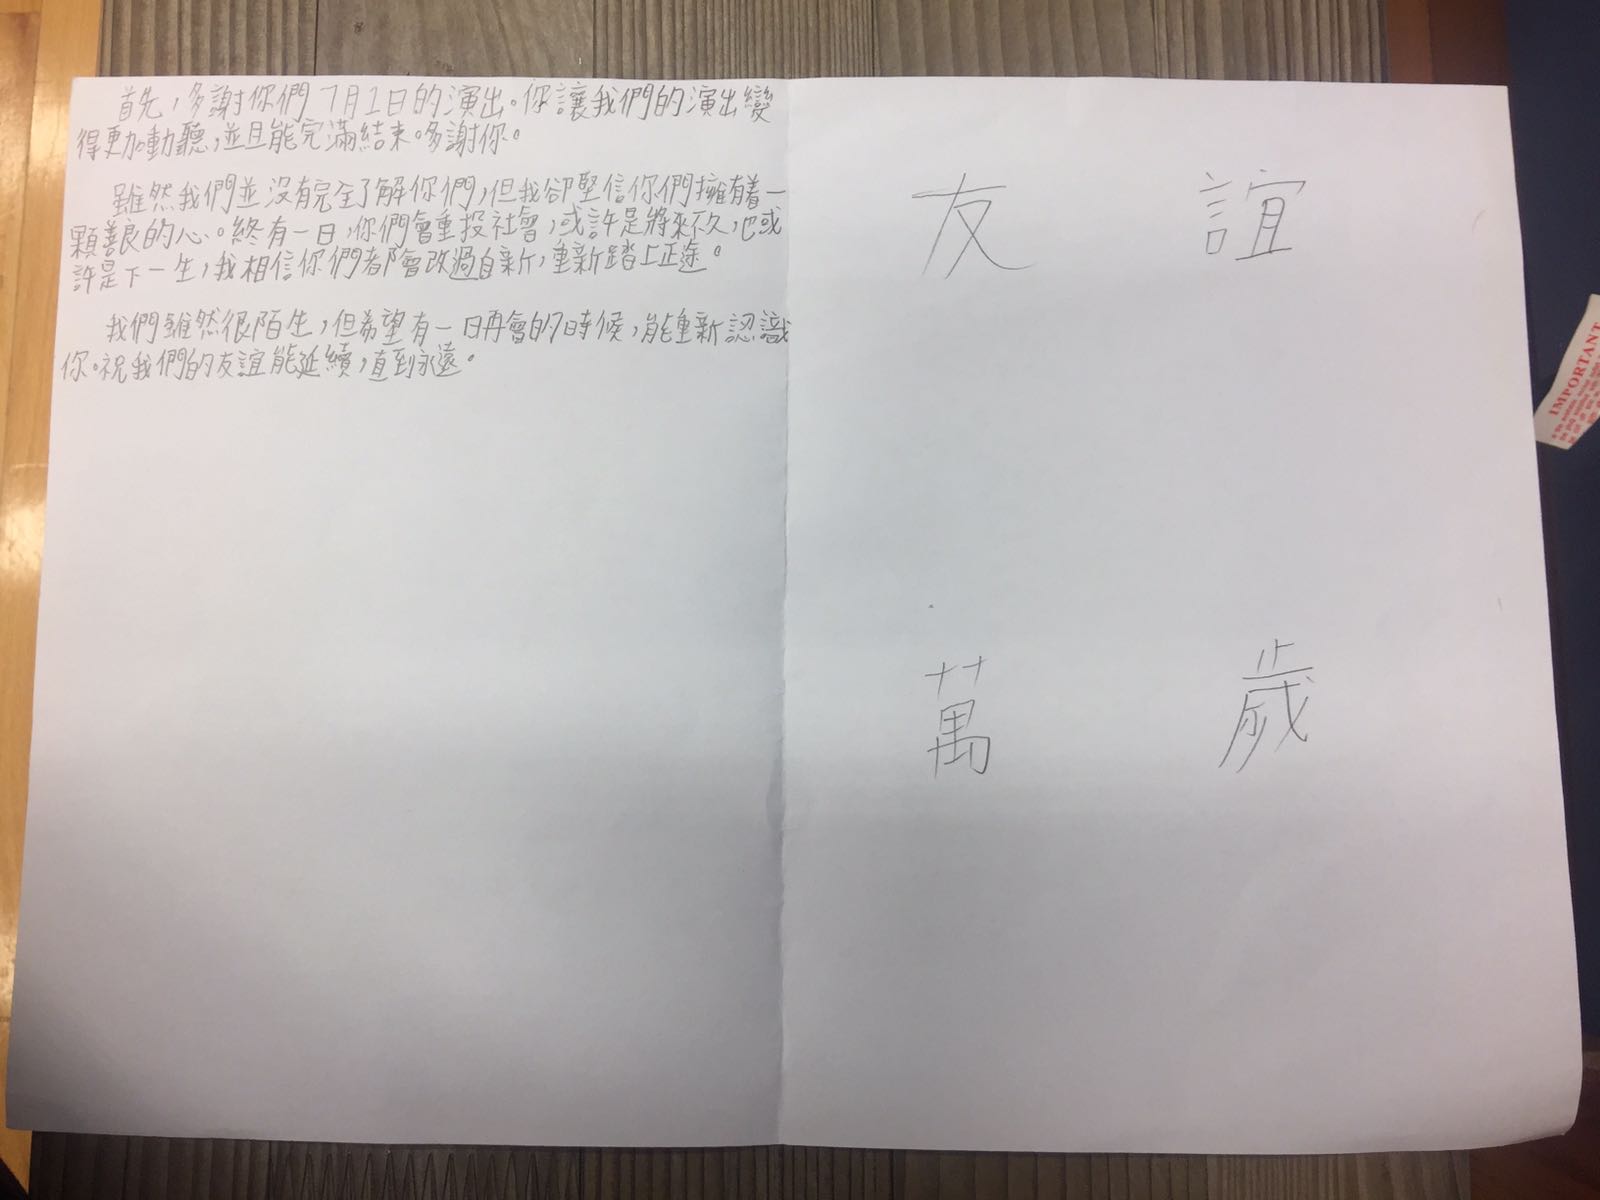 首先，多謝你們7月1日的演出。你讓我們的演出變
得更加動聽，並且能完滿結束。多謝你。
雖然我們並沒有完全了解你們，但我卻堅信你們擁有着一
顆善良的心。終有一日，你們會重投社會，或許是將來不久，也或
許是下一生，我相信你們都會改過自新，重新踏上正途。
我們雖然很陌生，但希望有一日再會的時候，能重新認識
你。祝我們的友誼能延續，直到永遠。
友誼
萬歲
IMPORTANT